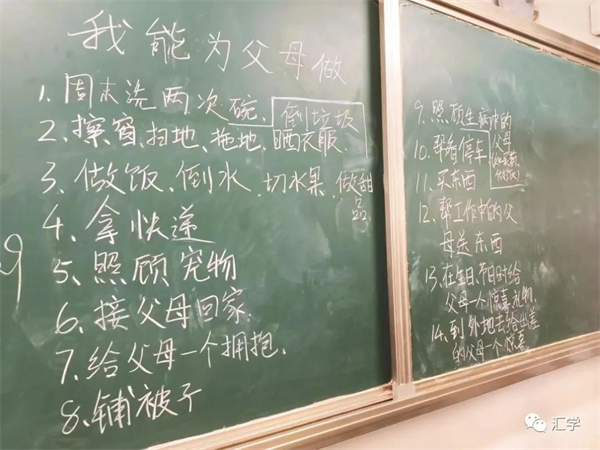 我能为父母做
1、周末洗两次碗、倒垃圾
2、擦窗、扫地、拖地、晒衣服
3、做饭、倒水、切水果、做甜
品
4、拿快递
5、照顾宠物
6、接父母回家、
7、给父母一个拥抱、
8、铺被子
9、照顾生病中的
父母
10、帮看停车
11、买东西
12、帮工作中的父
母送东西
13、在生日、节日时给
父母一个惊喜、礼物、
14、到外地去给出差
的父母一个惊喜
9
汇学